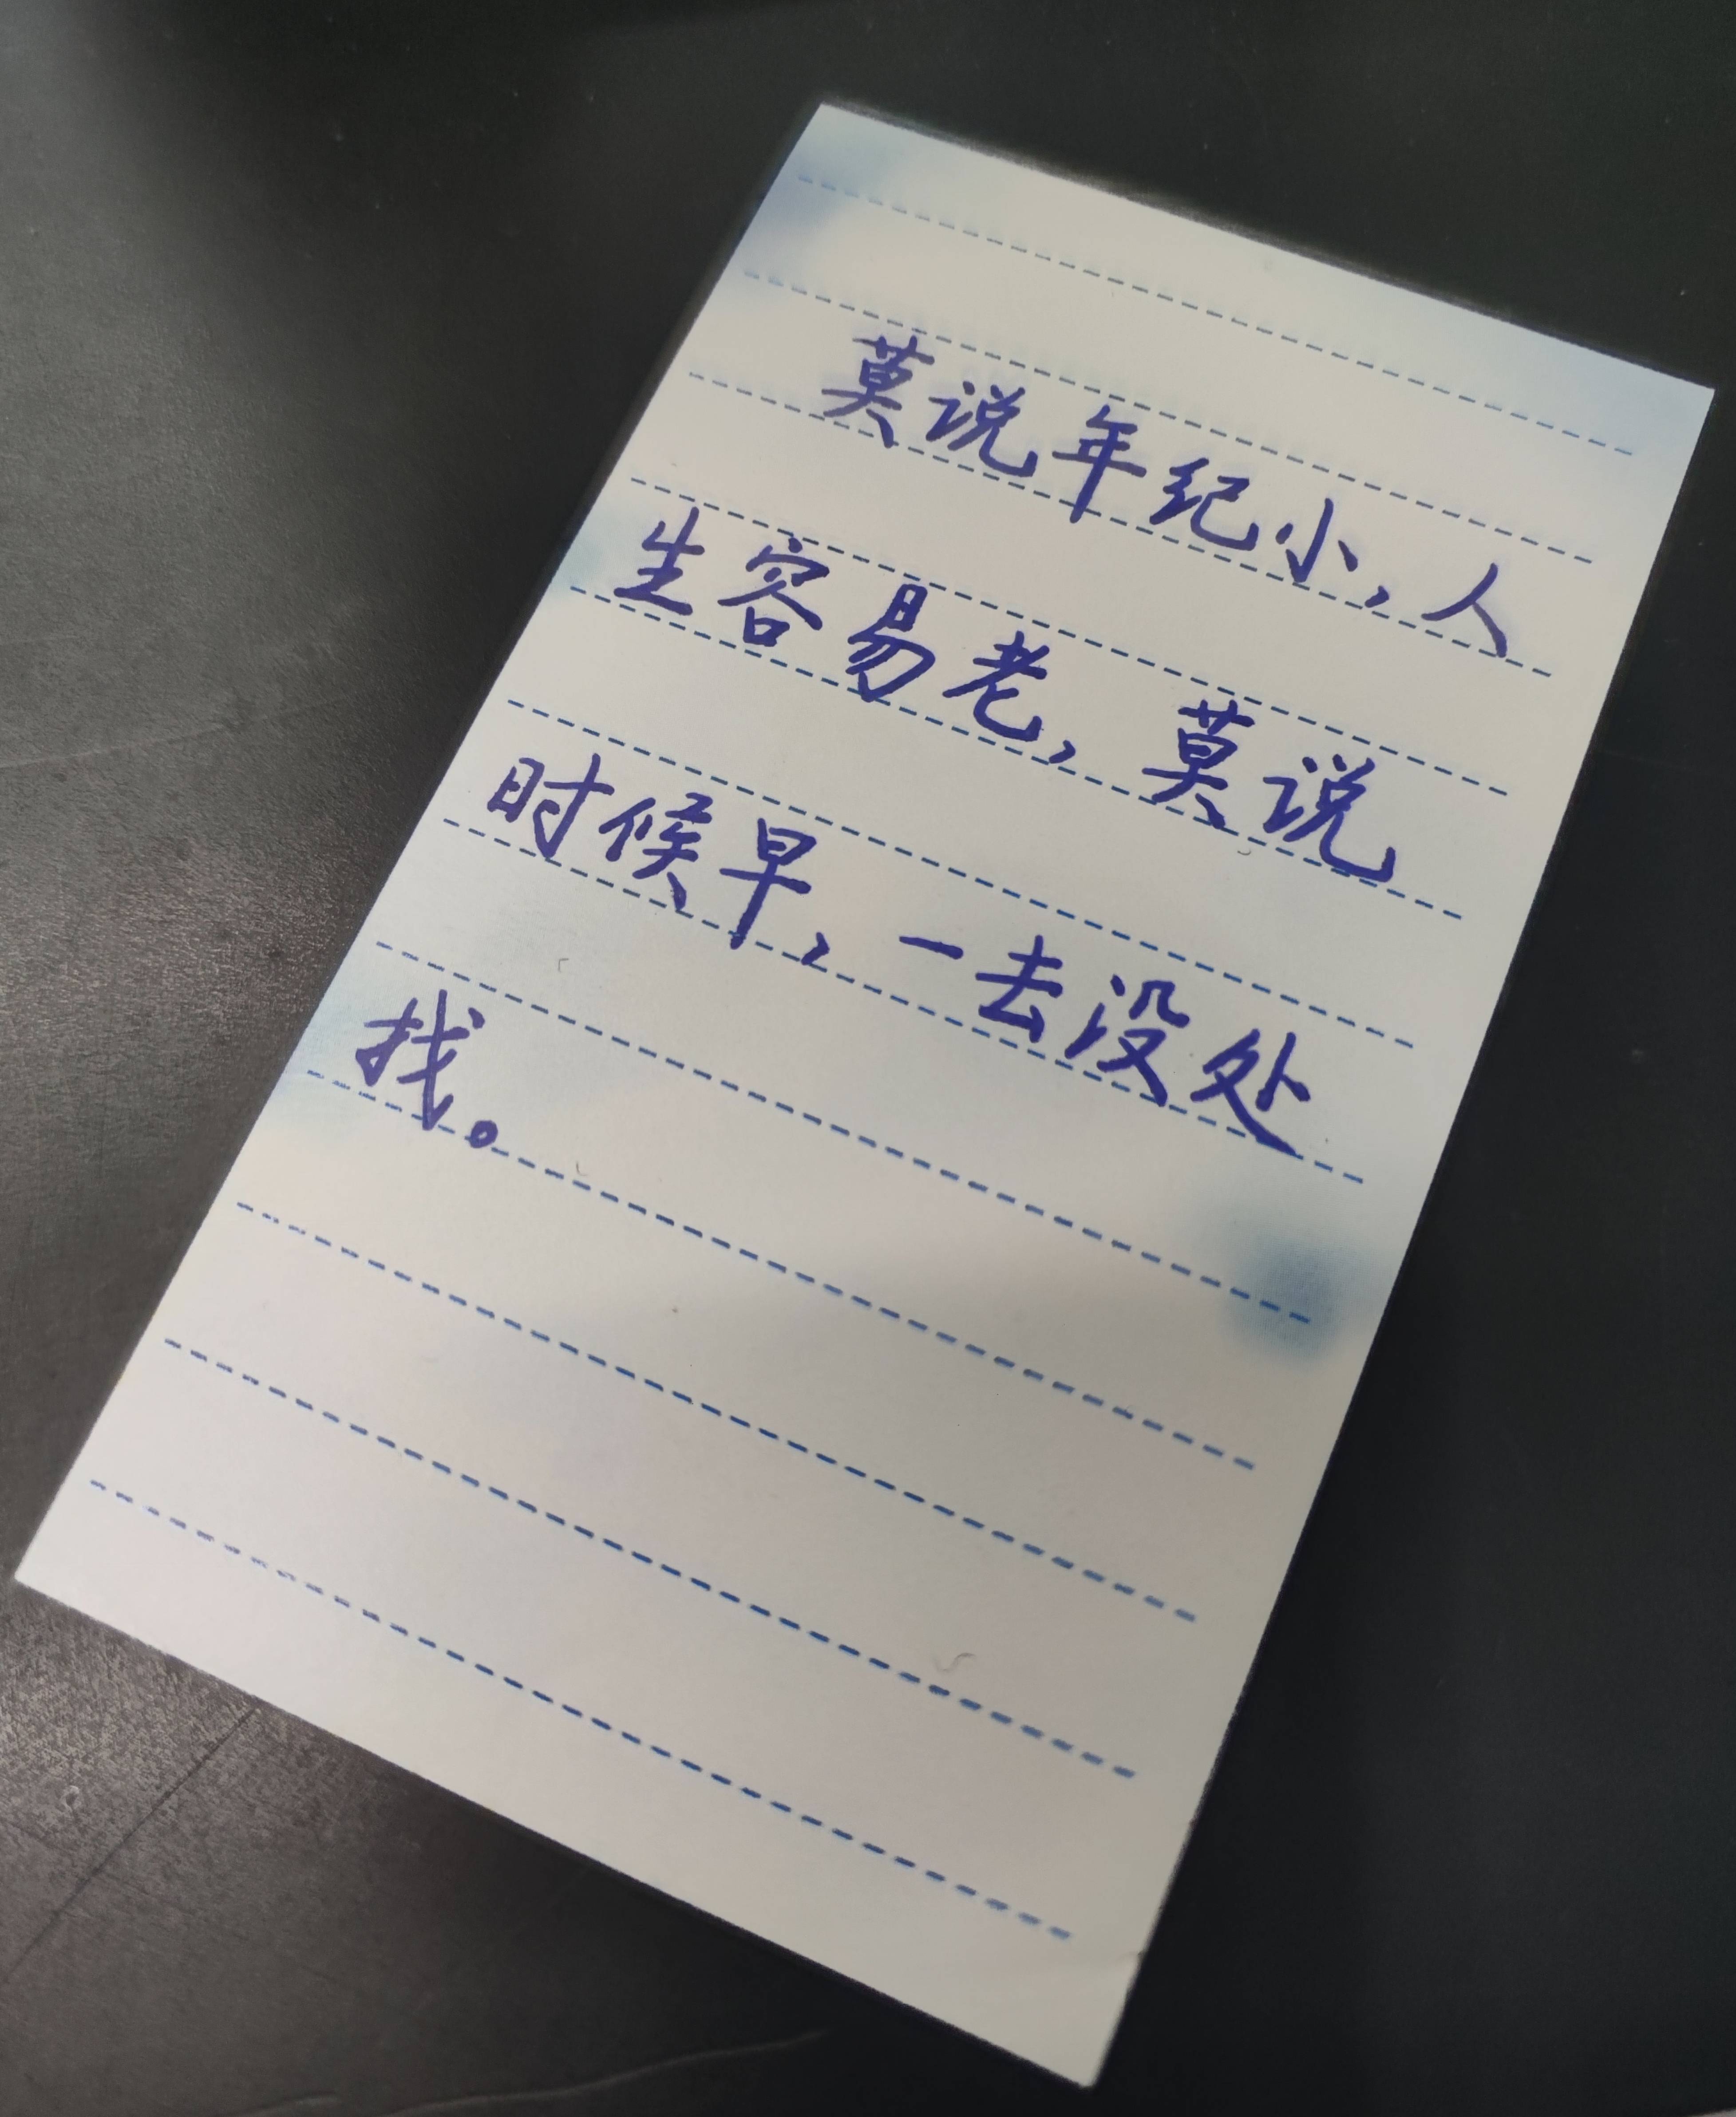 莫说年纪小，人
生容易老，莫说
时候早，一去没处
找。